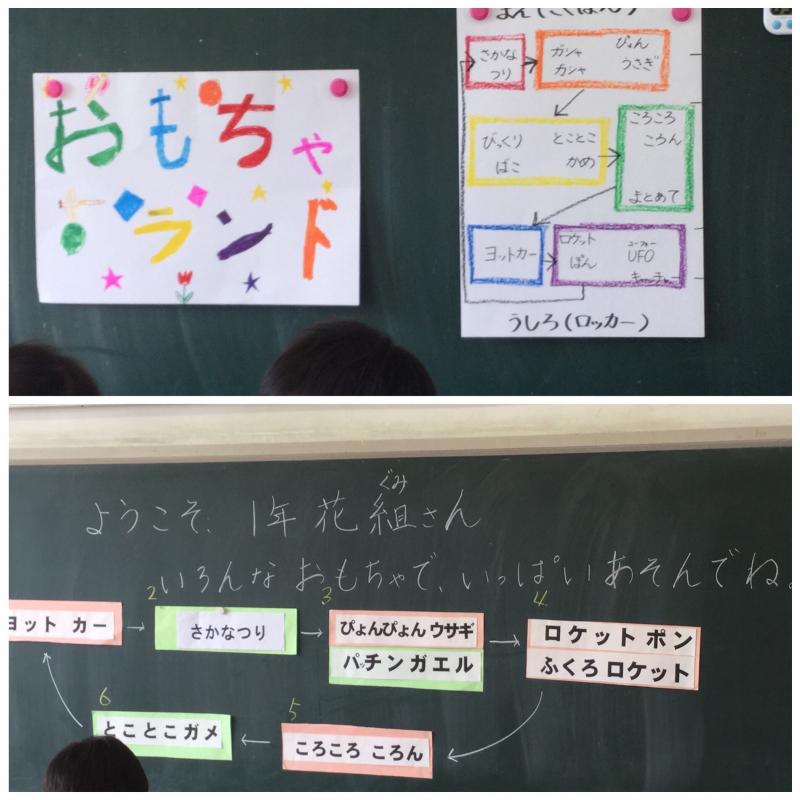 おもちゃ
ランド
まえ(こくばん)
さかな
つり
ガシャ
ガシャ
ぴょん
うさぎ
びっくり
ばこ
とことこ
かめ
ころころ
ころん
まとあて
ヨットカー
ロケット
ぽん
ユーフォー
UFO
キャッチャー
うしろ(ロッカー)
ようこそ、1年 花 組さん
ぐみ
いろんな おもちゃで、いっぱい あそんでね。
ヨット カー
2
さかなつり
3
ぴょんぴょん ウサギ
パッチン ガエル
4
ロケット ポン
ふくろ ロケット
5
ころころ ころん
6
とことこ ガメ